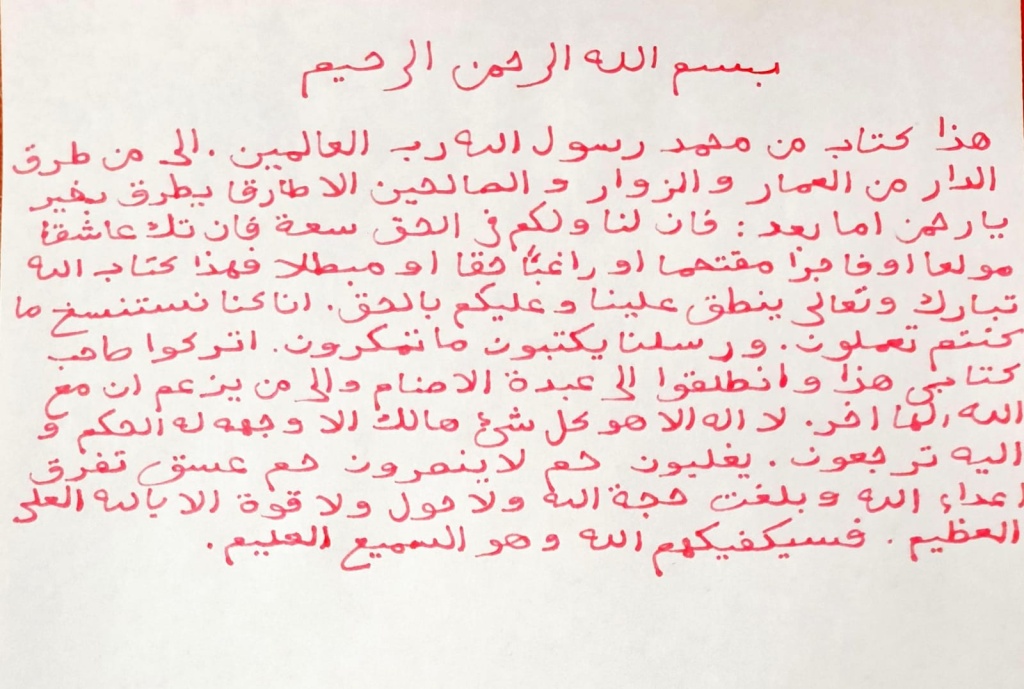 بسم الله الرحمن الرحيم
هذا كتاب من محمد رسول الله رب العالمين . الى من طرق
الدار من العمار و الزوار و الصالحين الا طارقا يطرق بخير
يا رحمن اما بعد : فان لنا ولكم في الحق سعة فان تك عاشقا
مولعا او فاجرا مقتحما او راغبًا حقا او مبطلا فهذا كتاب الله
تبارك وتعالى ينطق علينا و عليكم بالحق . انا كنا نستنسخ ما
كنتم تعملون . و رسلنا يكتبون ما تمكرون . اتركوا صاحب
كتابي هذا و انطلقوا الى عبدة الاصنام والى من يزعم ان مع
الله الها اخر . لا اله الا هو كل شئ هالك الا وجهه له الحكم و
اليه ترجعون . يغلبون حم لا ينصرون حم عسق تفرق
اعداء الله و بلغت حجة الله ولا حول ولا قوة الا بالله العلي
العظيم . فسيكفيكهم الله و هو السميع العليم .